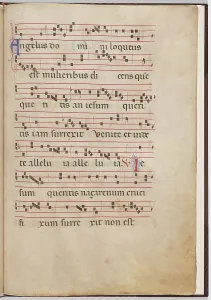 Angelus do mi ni locutus
est mulieribus di cens que
que ri tis an iesum queri
tis iam surrexit Venite et uide
te allelu ia alle lu ia V Ie
sum queritis nazarenum cruci
fi xum surre xit non est